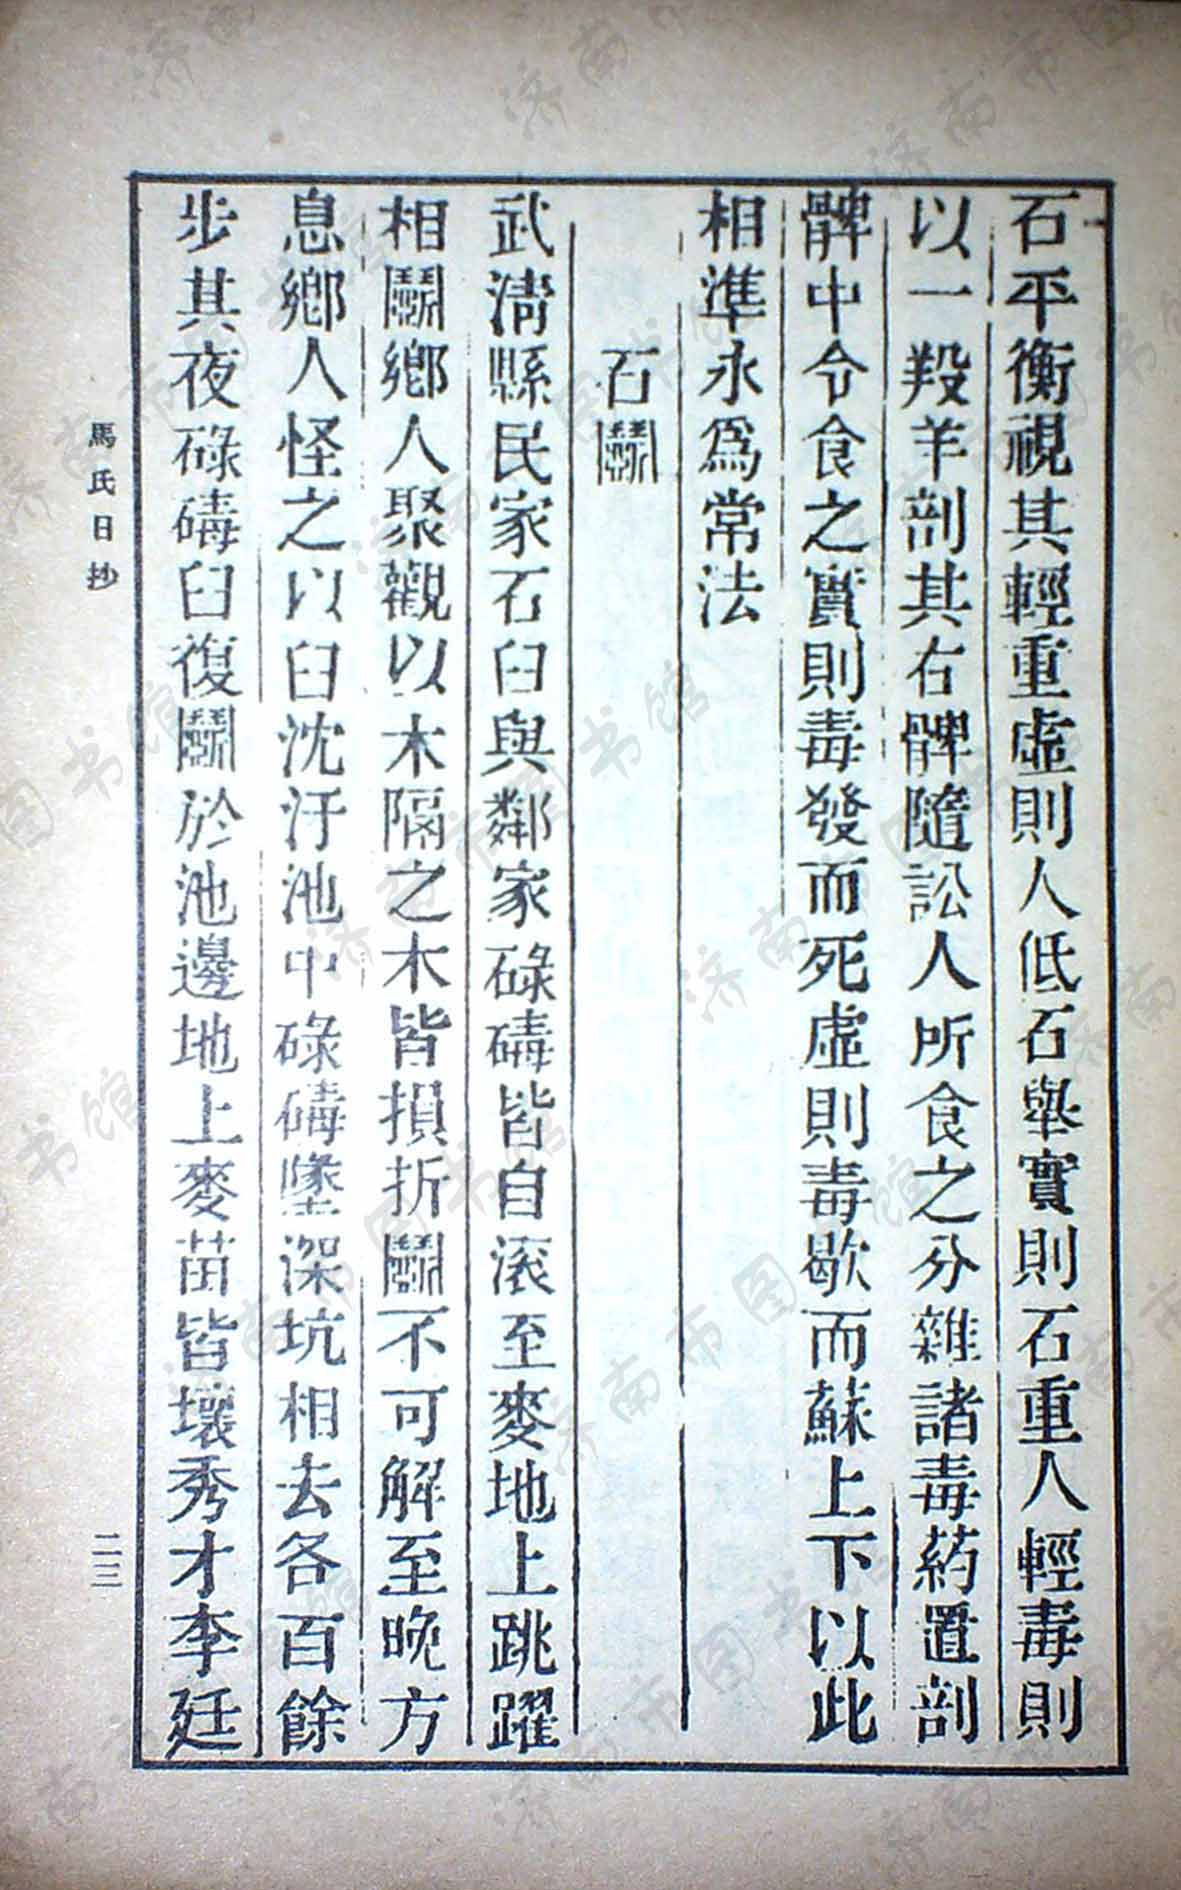 石平衡視其輕重虛則人低石舉實則石重人輕毒則
以一羖羊剖其右髀隨訟人所食之分雜諸毒药置剖
髀中令食之實則毒發而死虛則毒歇而蘇上下以此
相準永為常法
石鬭
武淸縣民家石臼與鄰家碌碡皆自滾至麥地上跳躍
相鬭鄉人聚觀以木隔之木皆損折鬭不可解至晚方
息鄉人怪之以臼沈汙池中碌碡墜深坑相去各百餘
步其夜碌碡臼復鬭於池邊地上麥苗皆壞秀才李廷
馬氏日抄
二三
济南市图书馆